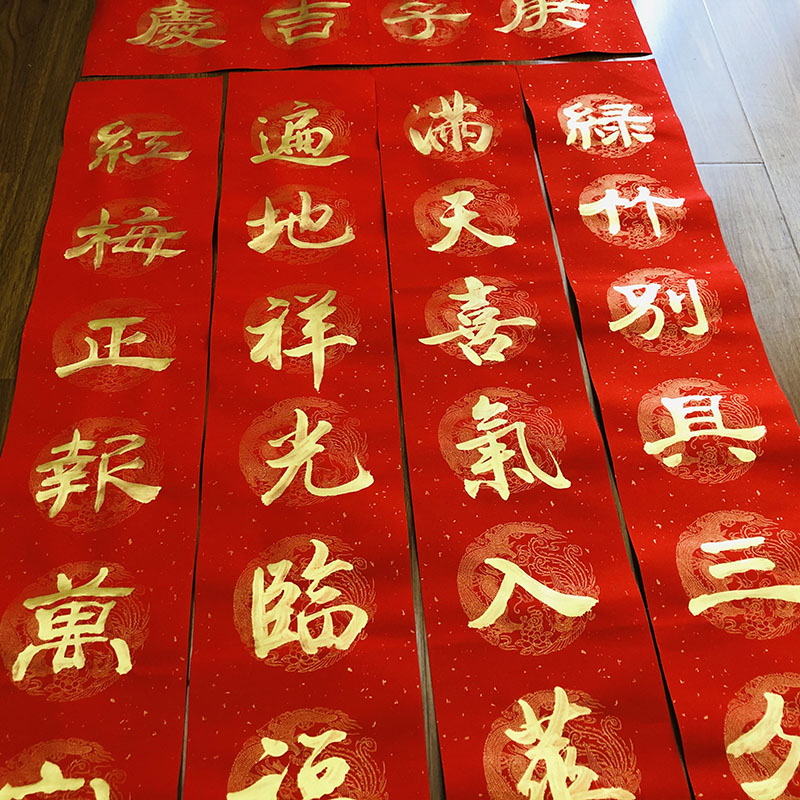 庚子吉慶
緑竹別具三分
滿天喜氣入華
遍地祥光臨福
紅梅正報萬